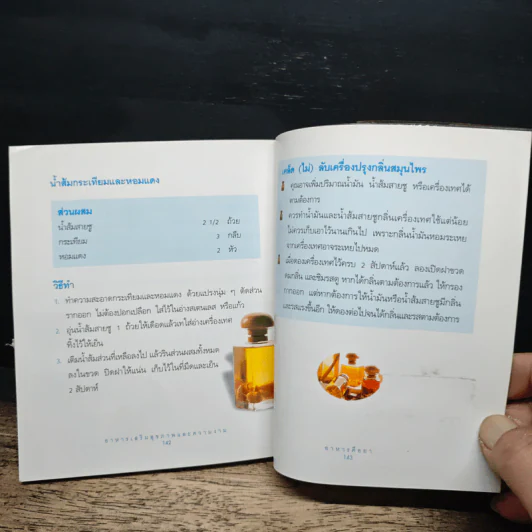 น้ำส้มกระเทียมและหอมแดง
ส่วนผสม
น้ำส้มสายชู 2 1/2 ถ้วย
กระเทียม 3 กลีบ
หอมแดง 2 หัว
วิธีทำ
1. ทำความสะอาดกระเทียมและหอมแดง ด้วยแปรงนุ่ม ๆ ตัดส่วน
รากออก ไม่ต้องปอกเปลือก ใส่ไว้ในอ่างสแตนเลส หรือแก้ว
2. อุ่นน้ำส้มสายชู 1 ถ้วยให้เดือดแล้วเทใส่อ่างเครื่องเทศ
ทิ้งไว้ให้เย็น
3. เติมน้ำส้มส่วนที่เหลือลงไป แล้วรินส่วนผสมทั้งหมด
ลงในขวด ปิดฝาให้แน่น เก็บไว้ในที่มืดและเย็น
2 สัปดาห์
อาหารเสริมสุขภาพและความงาม
142
เคล็ด (ไม่) ลับเครื่องปรุงกลิ่นสมุนไพร
คุณอาจเพิ่มปริมาณน้ำมัน น้ำส้มสายชู หรือเครื่องเทศได้
ตามต้องการ
ควรทำน้ำมันและน้ำส้มสายชูกลิ่นเครื่องเทศใช้แต่น้อย
ไม่ควรเก็บเอาไว้นานเกินไป เพราะกลิ่นน้ำมันหอมระเหย
จากเครื่องเทศอาจระเหยไปหมด
เมื่อดองเครื่องเทศไว้ครบ 2 สัปดาห์แล้ว ลองเปิดฝาขวด
ดมกลิ่น และชิมรสดู หากได้กลิ่นตามต้องการแล้ว ให้กรอง
กากออก แต่หากต้องการให้น้ำมันหรือน้ำส้มสายชูมีกลิ่น
และรสแรงขึ้นอีก ให้ดองต่อไปจนได้กลิ่นและรสตามต้องการ
อาหารคือยา
143